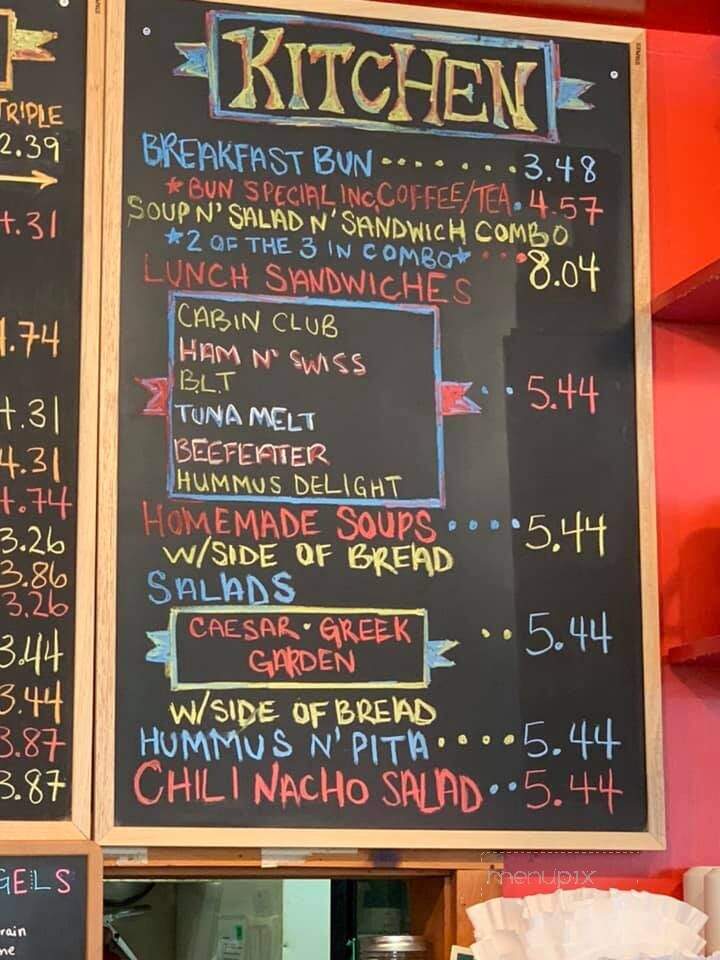 TRIPLE
2.39
4.31
4.74
4.31
4.31
4.74
3.26
3.86
3.26
3.44
3.44
3.87
3.87
GELS
rain
KITCHEN
BREAKFAST BUN ........ 3.48
*BUN SPECIAL INC. COFFEE/TEA. 4.57
SOUP N' SALAD N' SANDWICH COMBO
*2 OF THE 3 IN COMBO* ... 8.04
LUNCH SANDWICHES
CABIN CLUB
HAM N' SWISS
B.L.T
TUNA MELT
BEEFEATER
HUMMUS DELIGHT
.. 5.44
HOMEMADE SOUPS .... 5.44
W/SIDE OF BREAD
SALADS
CAESAR • GREEK
GARDEN
.. 5.44
W/SIDE OF BREAD
HUMMUS N' PITA .... 5.44
CHILI NACHO SALAD .. 5.44
menupix